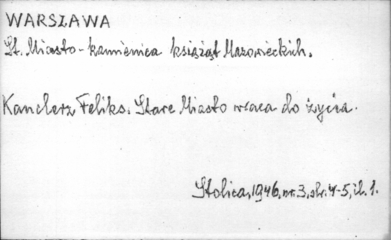 WARSZAWA
St. Miasto - kamienica książąt Mazowieckich.
Kanclerz Feliks. Stare Miasto wraca do życia.
Stolica, 1946, nr. 3, str. 4-5, il. 1.